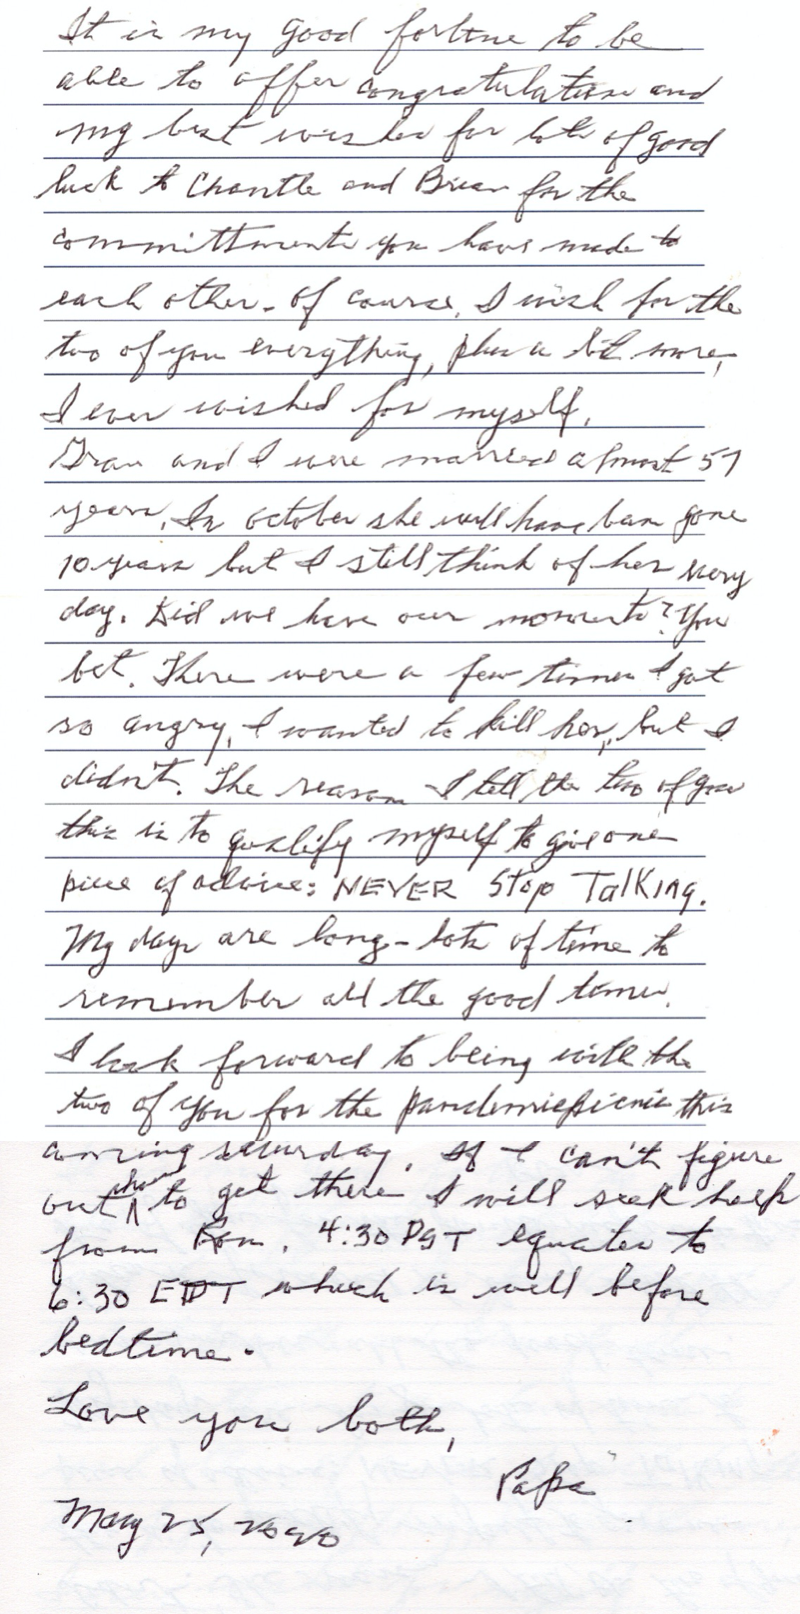 It is my good fortune to be
able to offer congratulations and
my best wishes for lots of good
luck to Chantle and Brian for the
committments you have made to
each other. Of course, I wish for the
two of you everything, plus a bit more,
I ever wished for myself.
Gran and I were married almost 57
years. In October she will have been gone
10 years but I still think of her every
day. Did we have our moments? You
bet. There were a few times I got
so angry, I wanted to kill her, but I
didn't. The reason I tell the two of you
this is to qualify myself to give one
piece of advice: NEVER Stop Talking.
My days are long - lots of time to
remember all the good times.
I look forward to being with the
two of you for the pandemic picnic this
coming saturday. If I can't figure
out how to get there I will seek help
from . 4:30 PST equates to
6:30 EDT which is well before
bedtime.
Love you both,
Papa
May 25, 2020